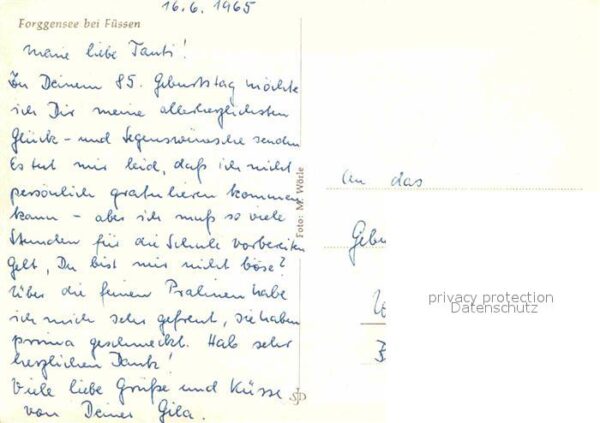 16.6.1965
Forggensee bei Füssen
Meine liebe Tanti!
Zu Deinem 85. Geburtstag möchte
ich Dir meine allerherzlichsten
Glück- und Segenswünsche senden
Es tut mir leid, daß ich nicht
persönlich gratulieren kommen
kann - aber ich muß so viele
Stunden für die Schule vorbereiten
Gelt, Du bist mir nicht böse?
Über die feinen Pralinen habe
ich mich sehr gefreut, sie haben
prima geschmeckt. Hab sehr
herzlichen Dank!
Viele liebe Grüße und Küsse
von Deiner Gila.
Foto: M. Wörle
An das
Gebu
privacy protection
Datenschutz